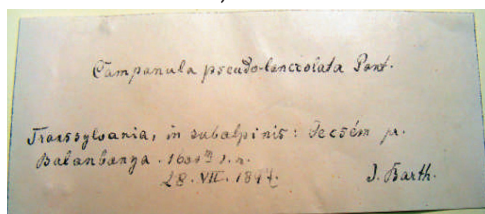 Campanula pseudo-lanceolata Pant.
Transsylvania, in subalpinis: Öecsém pr.
Balanbanya. 1600 m s. m.
28. VII. 1897.
J. Barth.